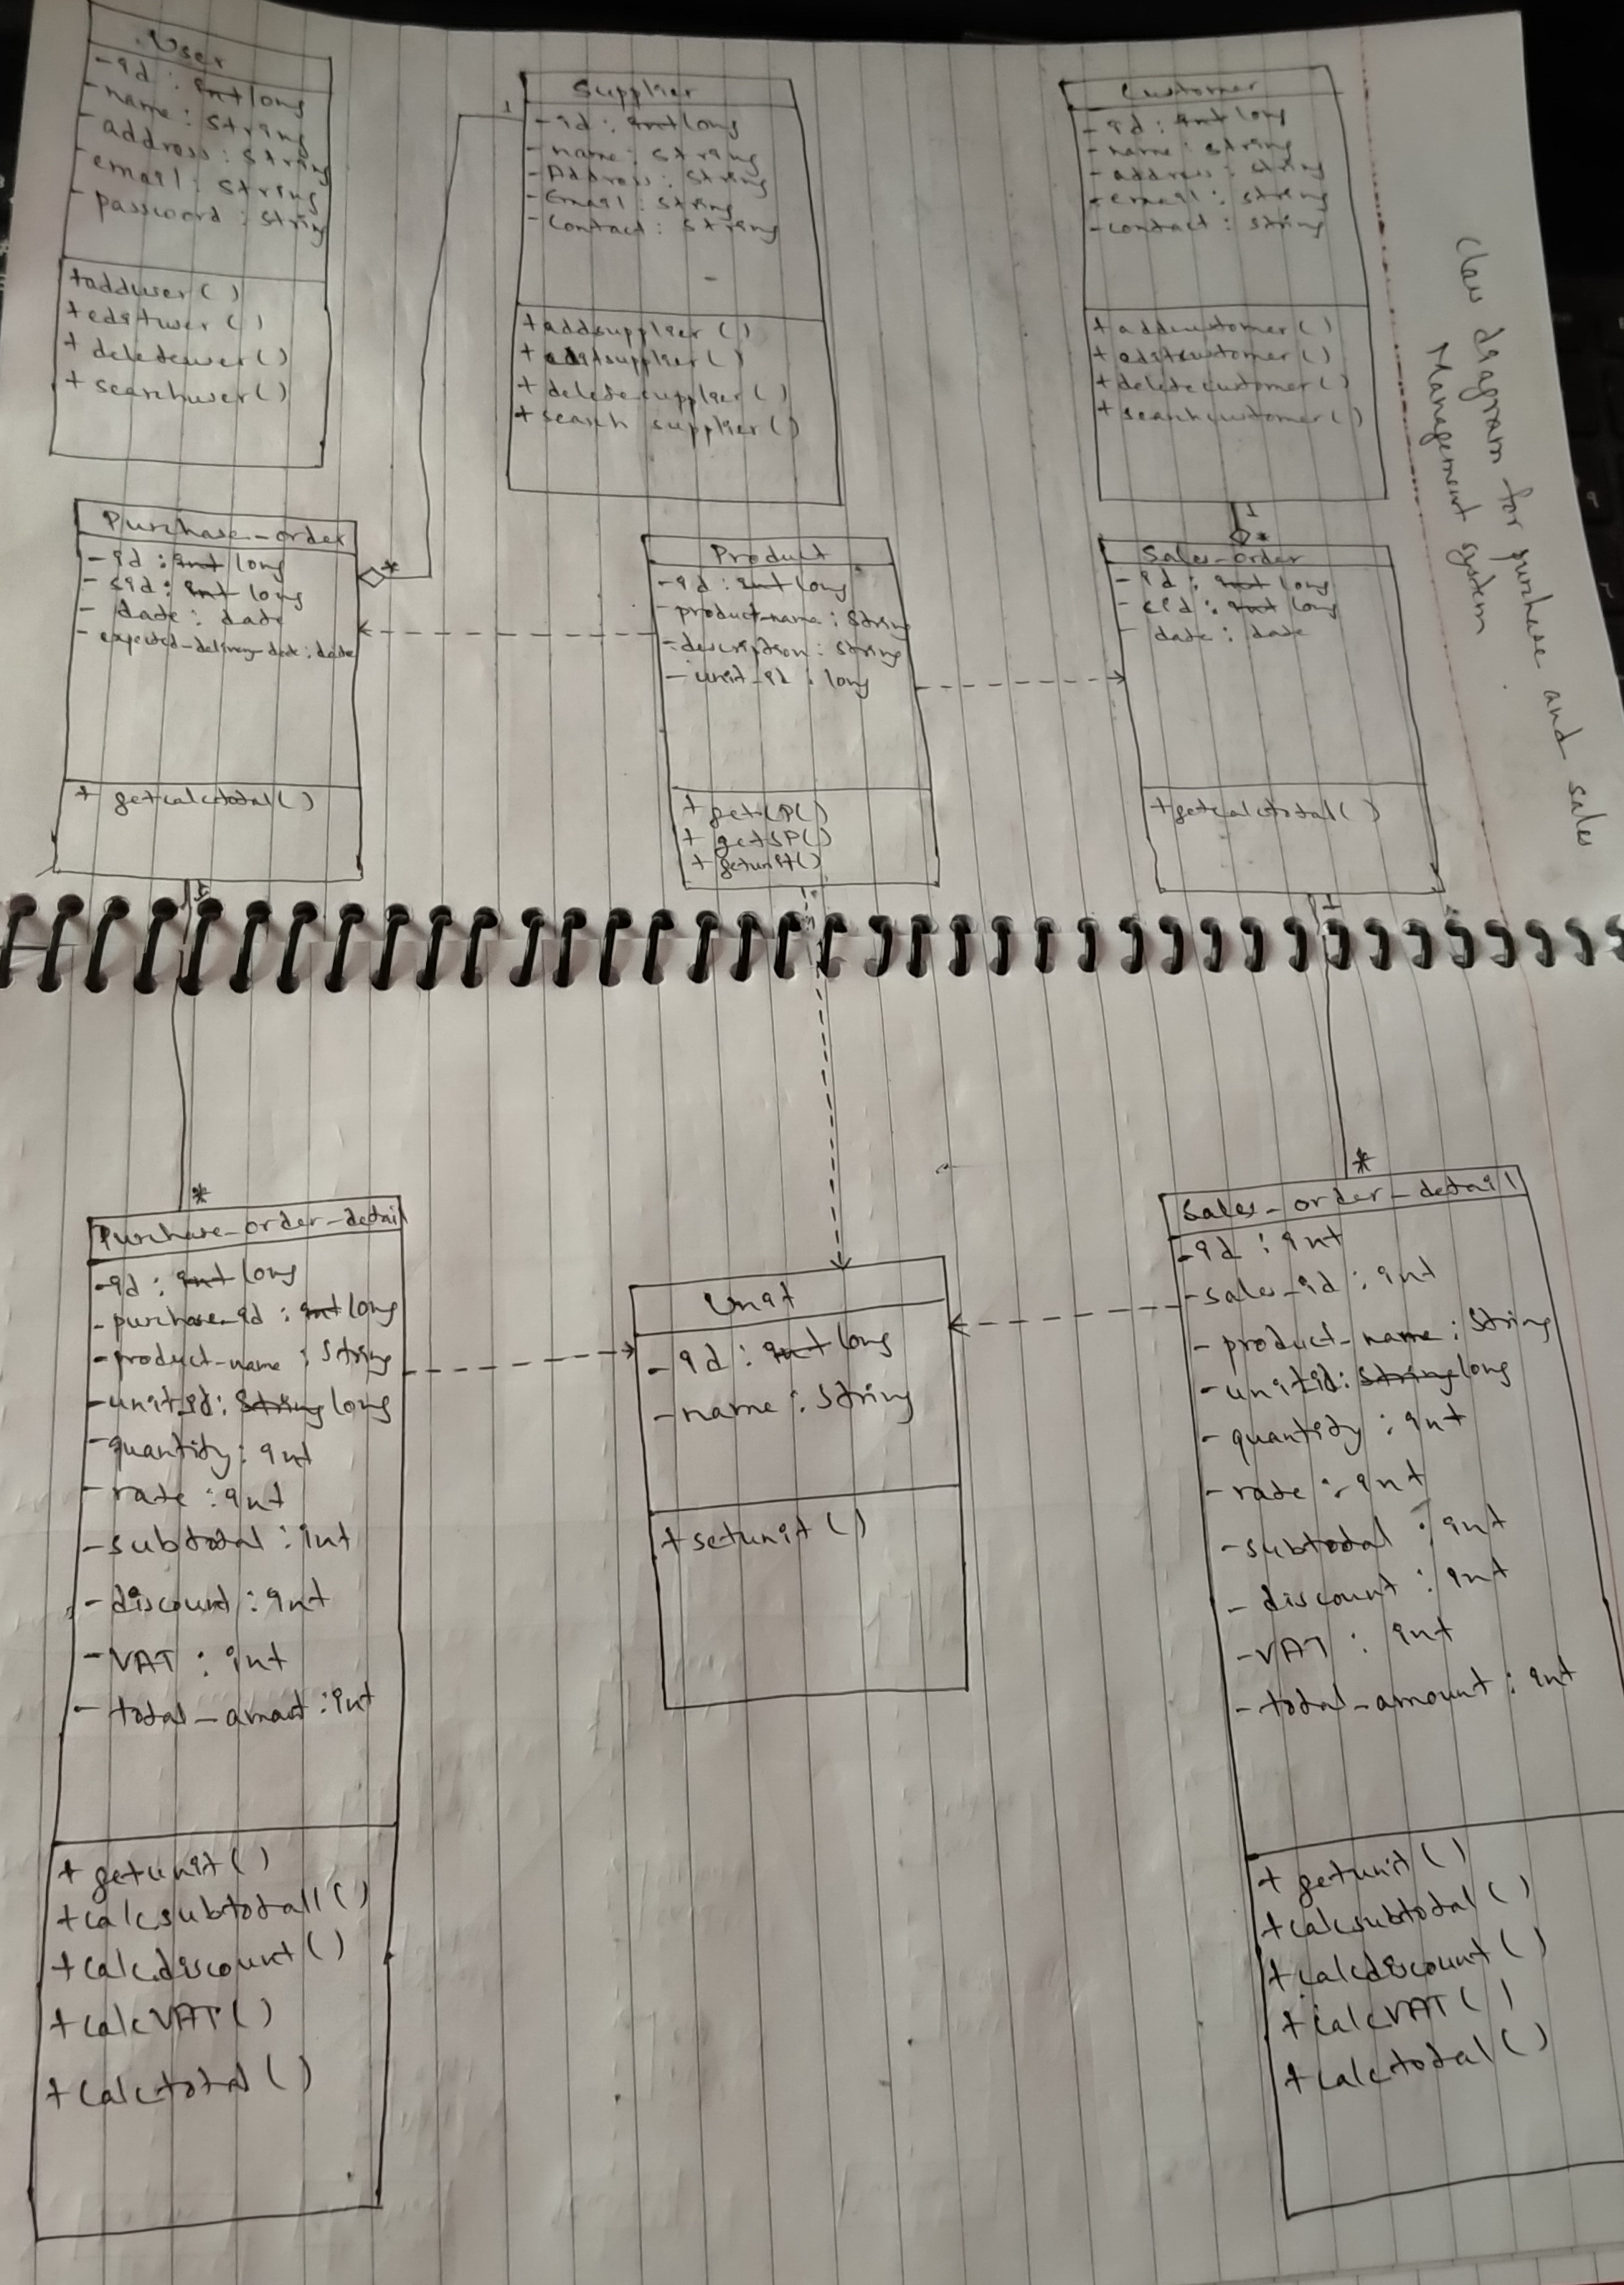 User
-id : int long
-name : string
-address : string
-email : string
-password : string
+adduser()
+edituser()
+deleteuser()
+searchuser()
1
Supplier
-id : int long
-name : string
-Address : string
-Email : string
-Contact : string
-
+addsupplier()
+editsupplier()
+deletesupplier()
+search supplier()
Customer
-id : int long
-name : string
-address : string
-email : string
-contact : string
+addcustomer()
+editcustomer()
+deletecustomer()
+searchcustomer()
1
*
Class diagram for purchase and sales
Management system.
Purchase_order
-id : int long
-sid : int long
-date : date
-expected_delivery_date : date
*
+ getcalctotal()
1
Product
-id : int long
-product_name : String
-description : String
-unit_id : long
+getCP()
+getSP()
+getunit()
Sales_order
-id : int long
-cid : int long
-date : date
+getcalctotal()
1
*
Purchase_order_detail
-id : int long
-purchase_id : int long
-product_name : String
-unit_id : String long
-quantity : int
-rate : int
-subtotal : int
-discount : int
-VAT : int
-total_amount : int
+getunit()
+calcsubtotall()
+calcdiscount()
+calcVAT()
+calctotal()
Unit
-id : int long
-name : String
+setunit()
*
Sales_order_detail
-id : int
-sales_id : int
-product_name : String
-unitid : String long
-quantity : int
-rate : int
-subtotal : int
-discount : int
-VAT : int
-total_amount : int
+getunit()
+calcsubtotal()
+calcdiscount()
+calcVAT()
+calctotal()